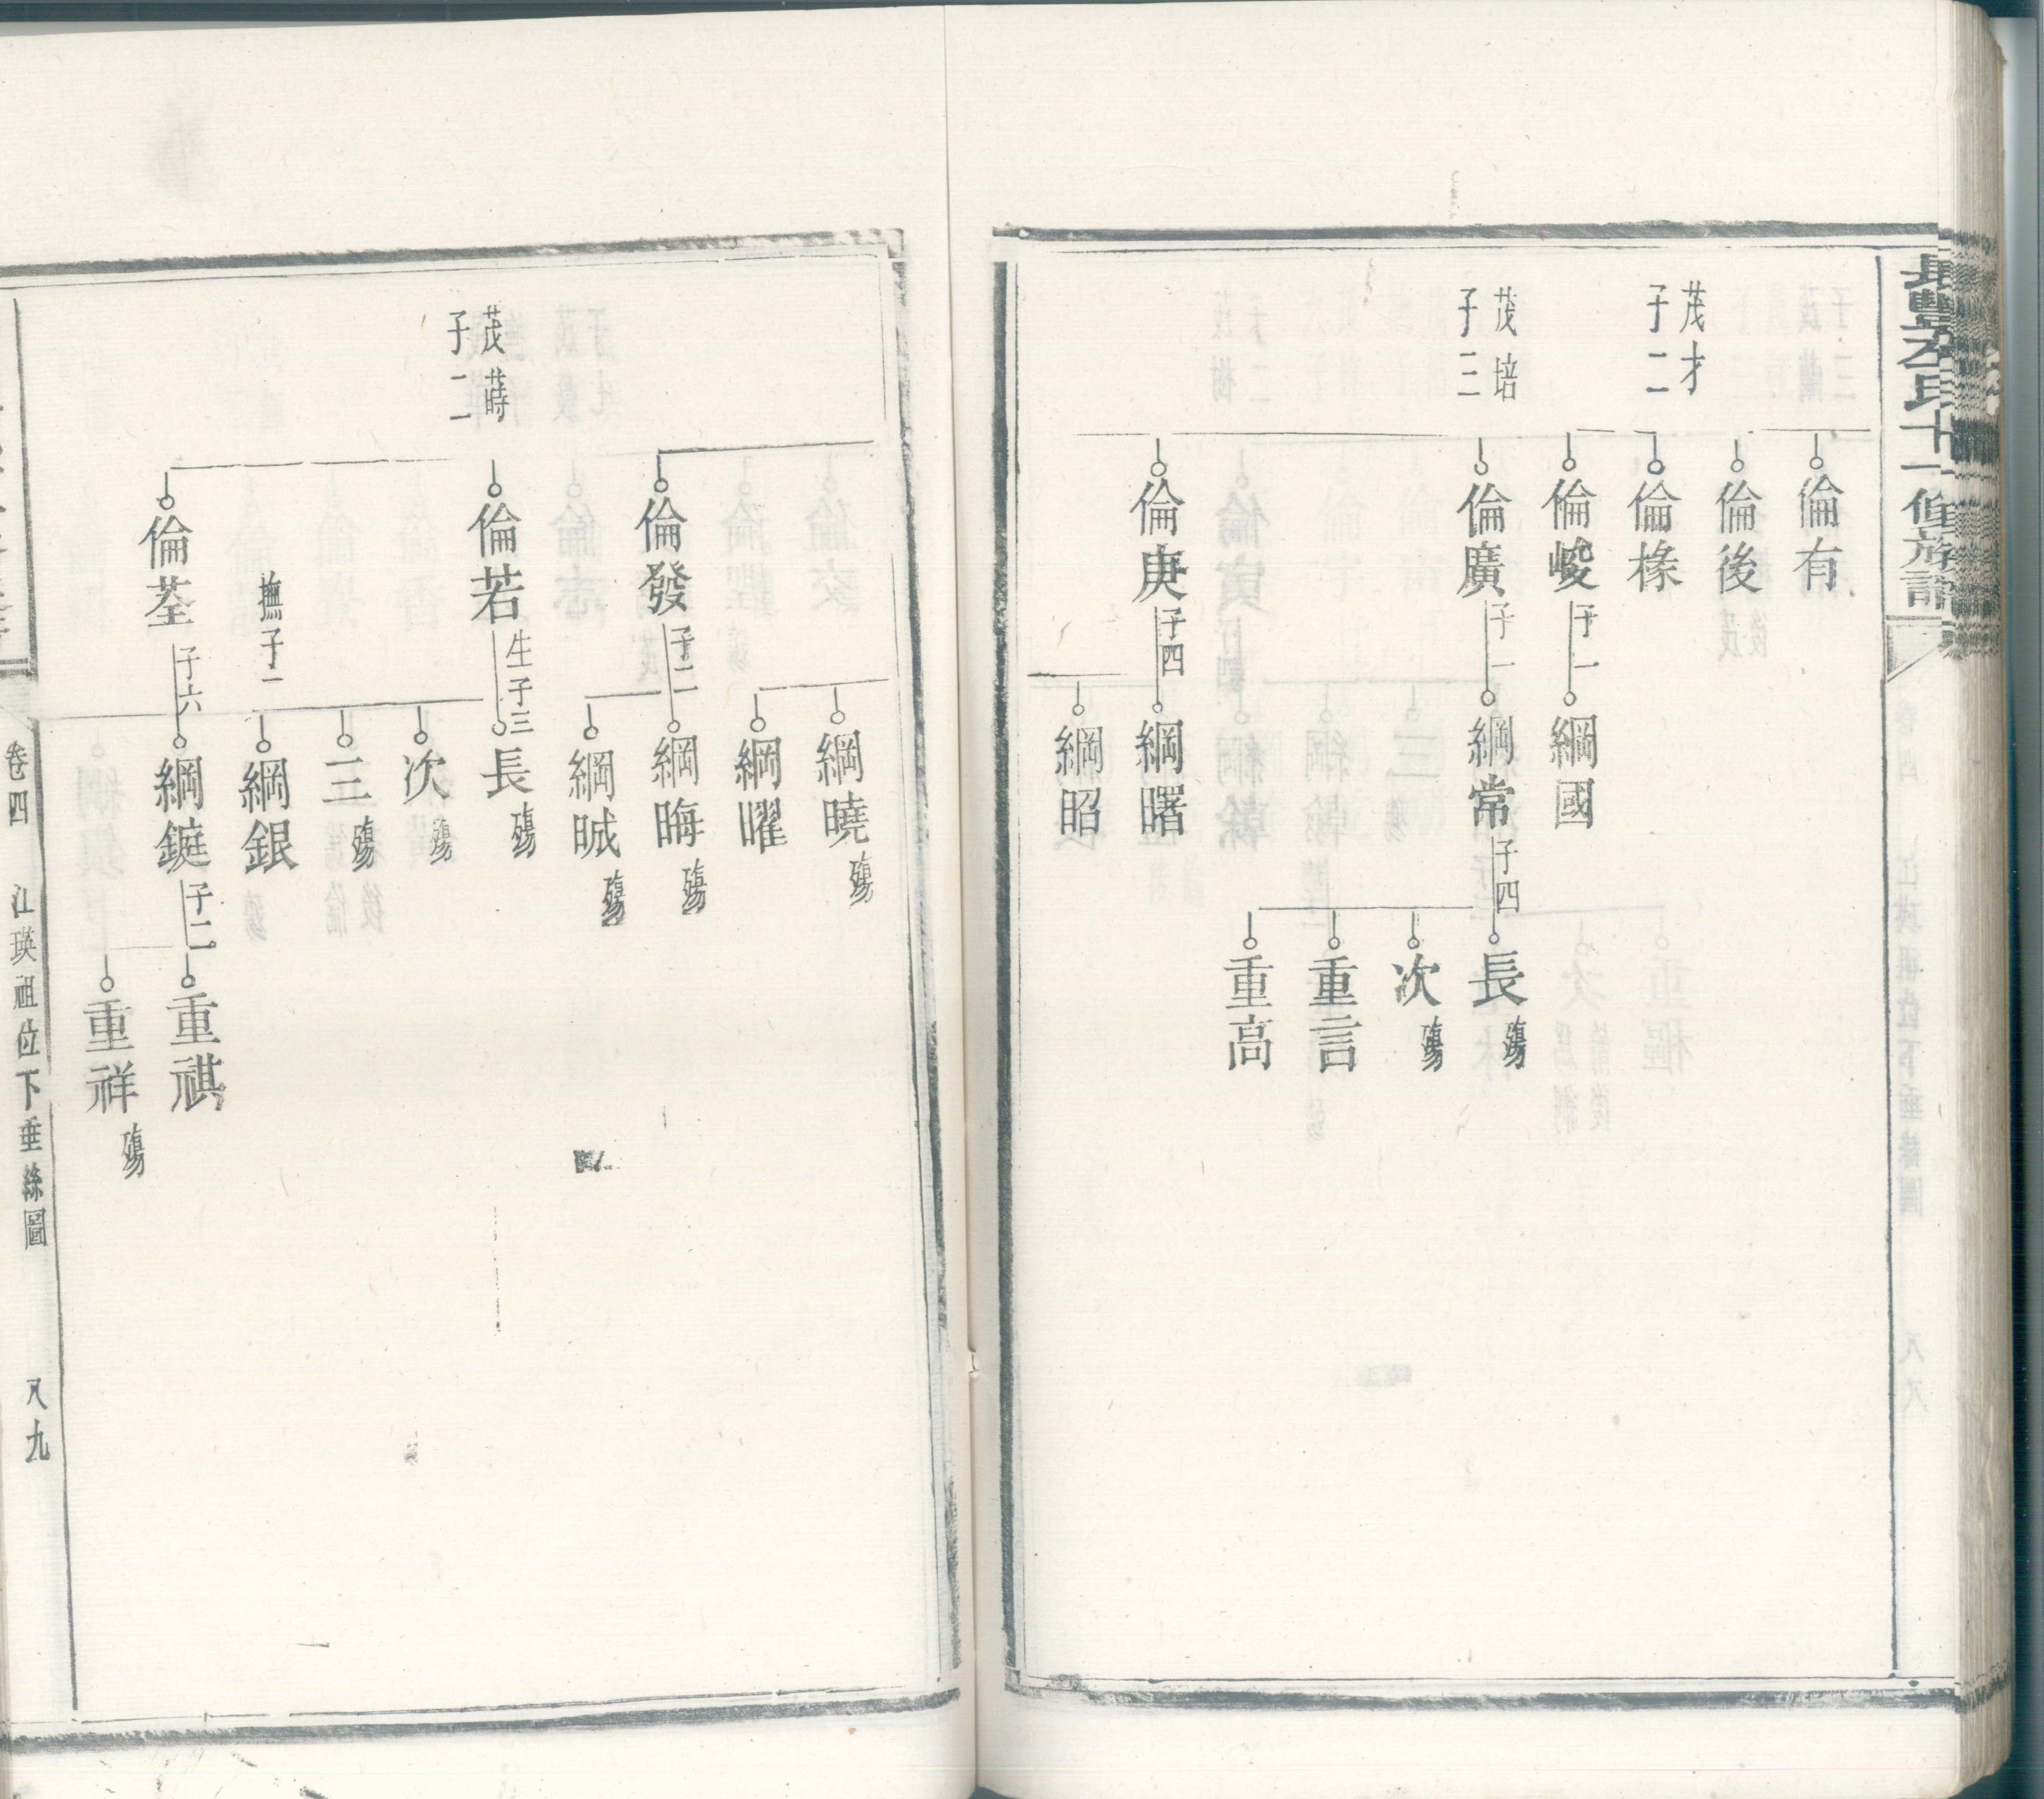 長豐左氏十一修族譜
倫有
倫後
茂才
子二
倫椽
倫峻
子一
綱國
茂培
子三
倫廣
子一
綱常
子四
長殤
次殤
重言
重高
倫庚
子四
綱曙
綱昭
綱曉殤
綱曜
倫發
子二
綱晦殤
綱晠殤
茂蒔
子二
倫若
生子三
長殤
次殤
三殤
撫子一
綱銀
倫荃
子六
綱鋋
子二
重祺
重祥殤
卷四
江瑛祖位下垂絲圖
八九